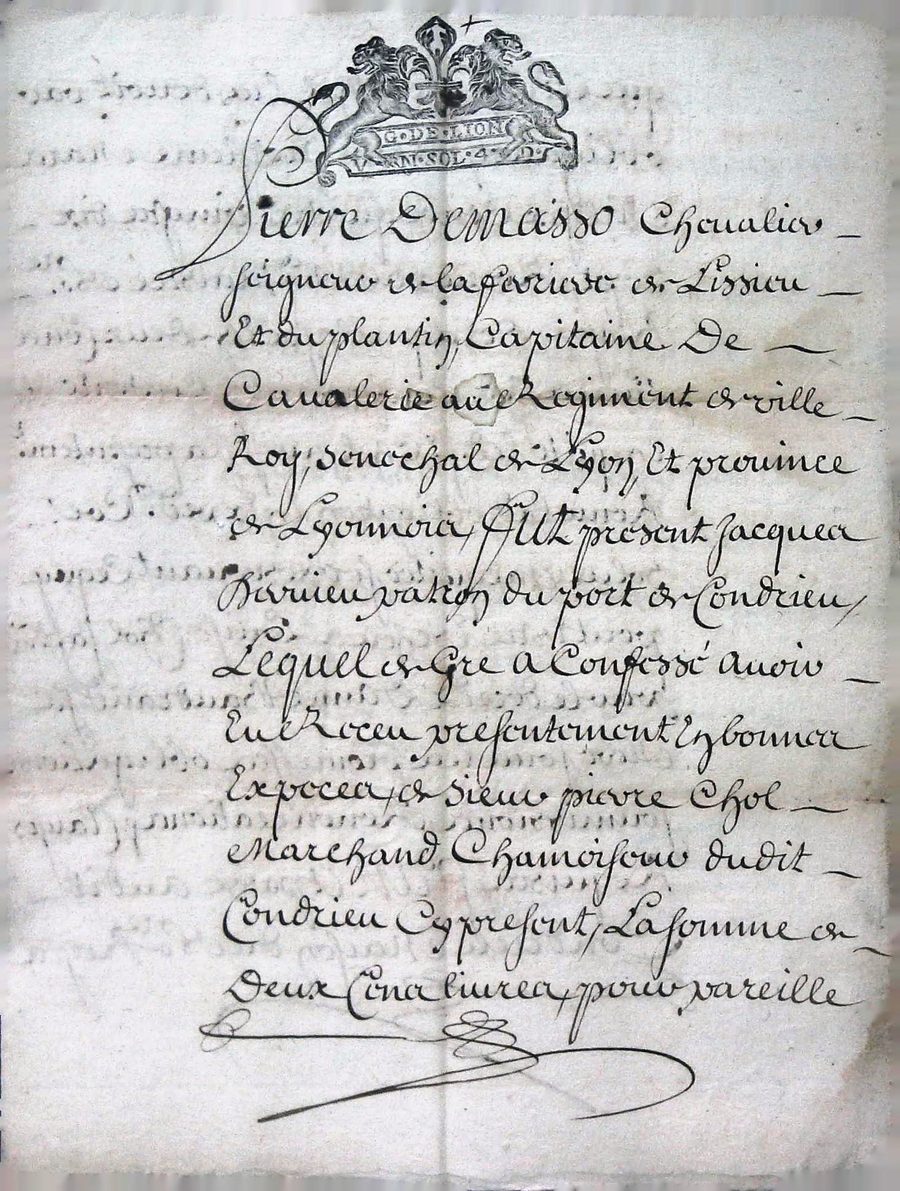 G·DE·LION
VN·SOL·4·D·
Pierre Demasso Cheualier
seigneur de la ferriere de Lissieu
Et du plantin, Capitaine De
Caualerie au Regiment de ville
Roy, senechal de Lyon, Et prouince
de Lyonnois, Fut present Jacques
patron du port de Condrieu,
Lequel de Gre a Confessé auoir
Eu Et Receu presentement En bonnes
Expeces, de sieur pierre Chol
Marchand Chamoiseur dudit
Condrieu Cy present, La somme de
Deux Cens liures, pour pareille